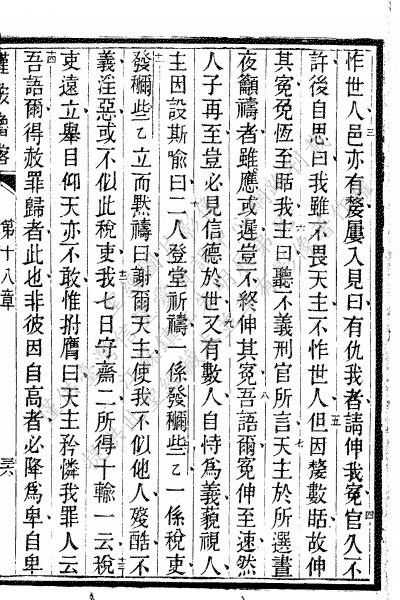 怍世人邑亦有嫠屢入見曰有仇我者請伸我冤官久不
許後自思曰我雖不畏天主不怍世人但因嫠數聒故伸
其冤免恆至聒我主曰聽不義刑官所言天主於所選晝
夜籲禱者雖應或遲豈不終伸其冤吾語爾冤伸至速然
人子再至豈必見信德於世又有數人自恃為義藐視人
主因設斯喻曰二人登堂祈禱一係發穪些乙一係稅吏
發穪些乙立而默禱曰謝爾天主使我不似他人殘酷不
義淫惡或不似此稅吏我七日守齋二所得十輸一云稅
吏遠立舉目仰天亦不敢惟拊膺曰天主矜憐我罪人云
吾語爾得赦罪歸者此也非彼因自高者必降為卑自卑
第十八章